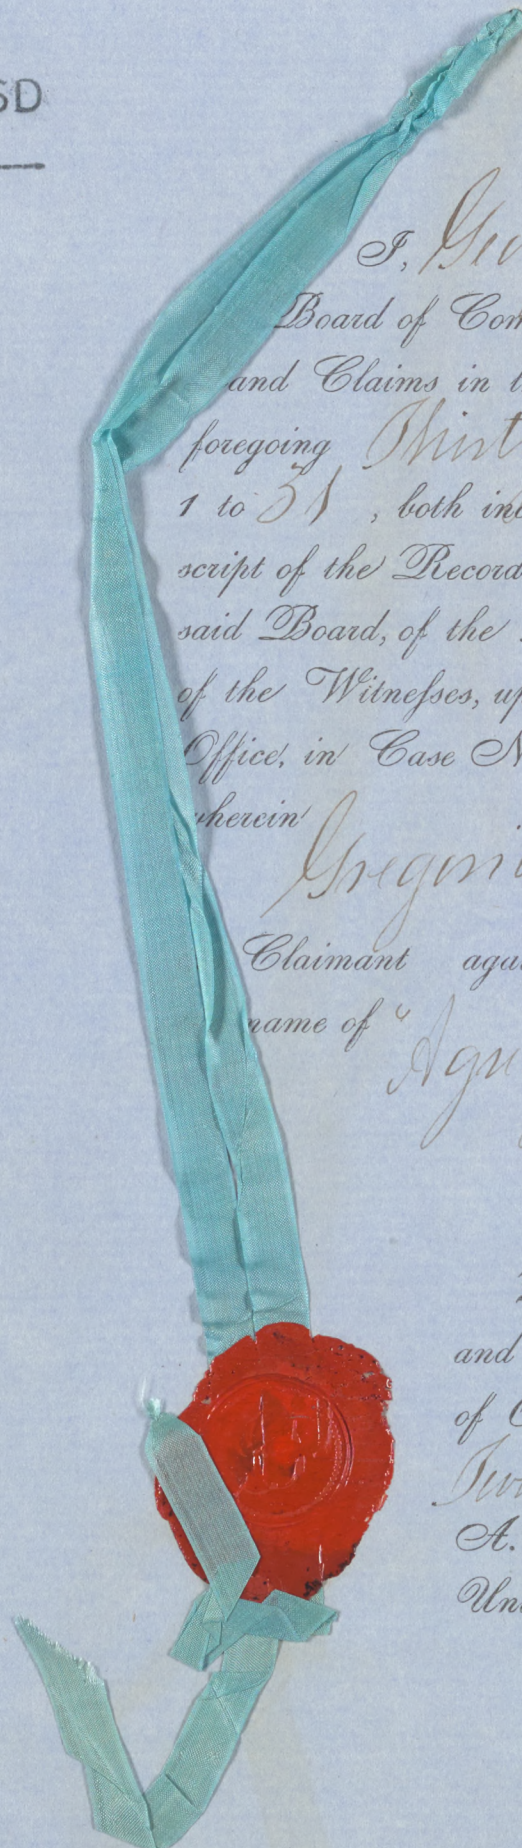 SD
I, Geo
Board of Com
and Claims in t
foregoing Thirt
1 to 31, both inc
script of the Record
said Board, of the
of the Witnesses, up
Office, in Case N
wherein
Gregori
Claimant aga
name of "
Agu
and
of C
Twe
A.
Uni